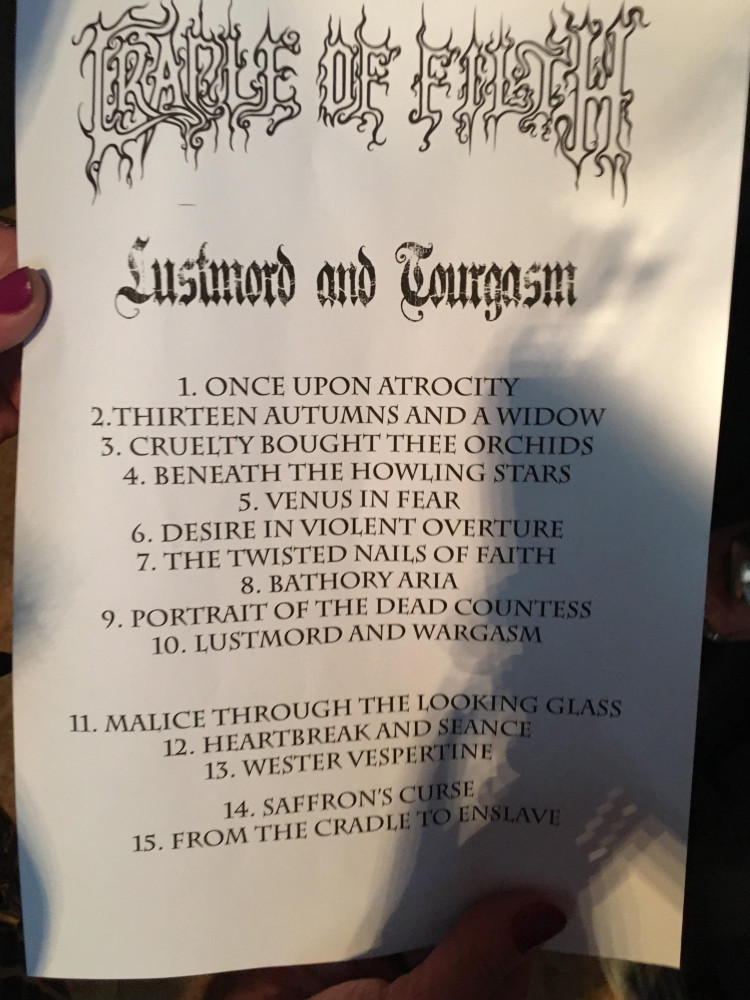 CRADLE OF FILTH
Lustmord and Tourgasm
1. ONCE UPON ATROCITY
2.THIRTEEN AUTUMNS AND A WIDOW
3. CRUELTY BOUGHT THEE ORCHIDS
4. BENEATH THE HOWLING STARS
5. VENUS IN FEAR
6. DESIRE IN VIOLENT OVERTURE
7. THE TWISTED NAILS OF FAITH
8. BATHORY ARIA
9. PORTRAIT OF THE DEAD COUNTESS
10. LUSTMORD AND WARGASM
11. MALICE THROUGH THE LOOKING GLASS
12. HEARTBREAK AND SEANCE
13. WESTER VESPERTINE
14. SAFFRON'S CURSE
15. FROM THE CRADLE TO ENSLAVE